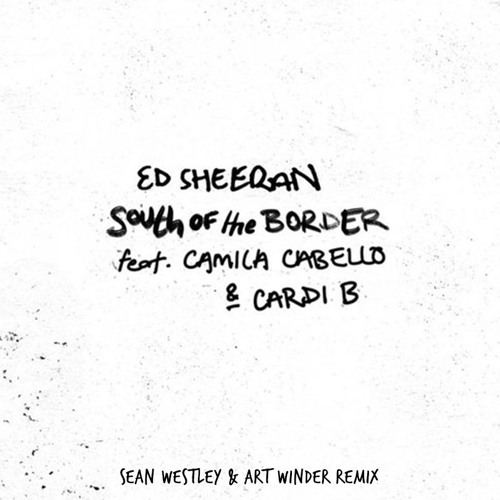 ED SHEERAN
South OF the BORDER
feat. CAMILA CABELLO
& CARDI B
SEAN WESTLEY & ART WINDER REMIX